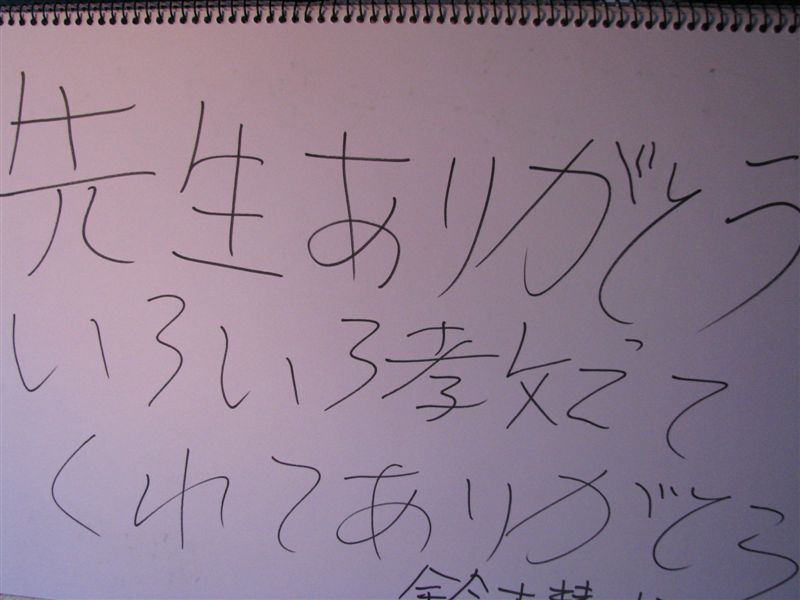 先生ありがとう
いろいろ教えて
くれてありがとう
鈴木